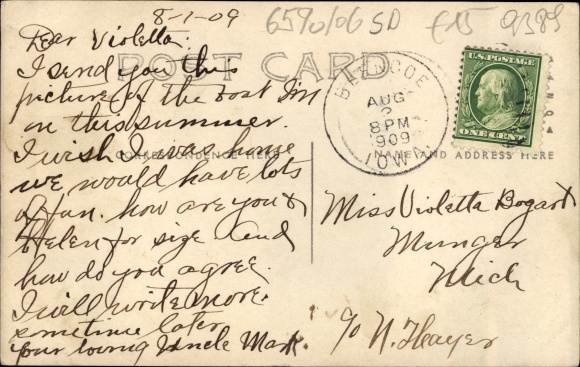 8-1-09
6590/06 SD
£15
Dear Violetta:
POST CARD
I send you this
picture of the boat I'm
on this summer.
I wish I was home
CORRESPONDENCE HERE
we would have lots
of fun. how are you &
Helen for size and
how do you agree.
I will write more
sometime later
your loving Uncle Mark.
AUG
2
8 PM
1909
IOWA
U.S. POSTAGE
ONE CENT
NAME AND ADDRESS HERE
Miss Violetta Bogart
Munger
Mich
c/o N. Thayer